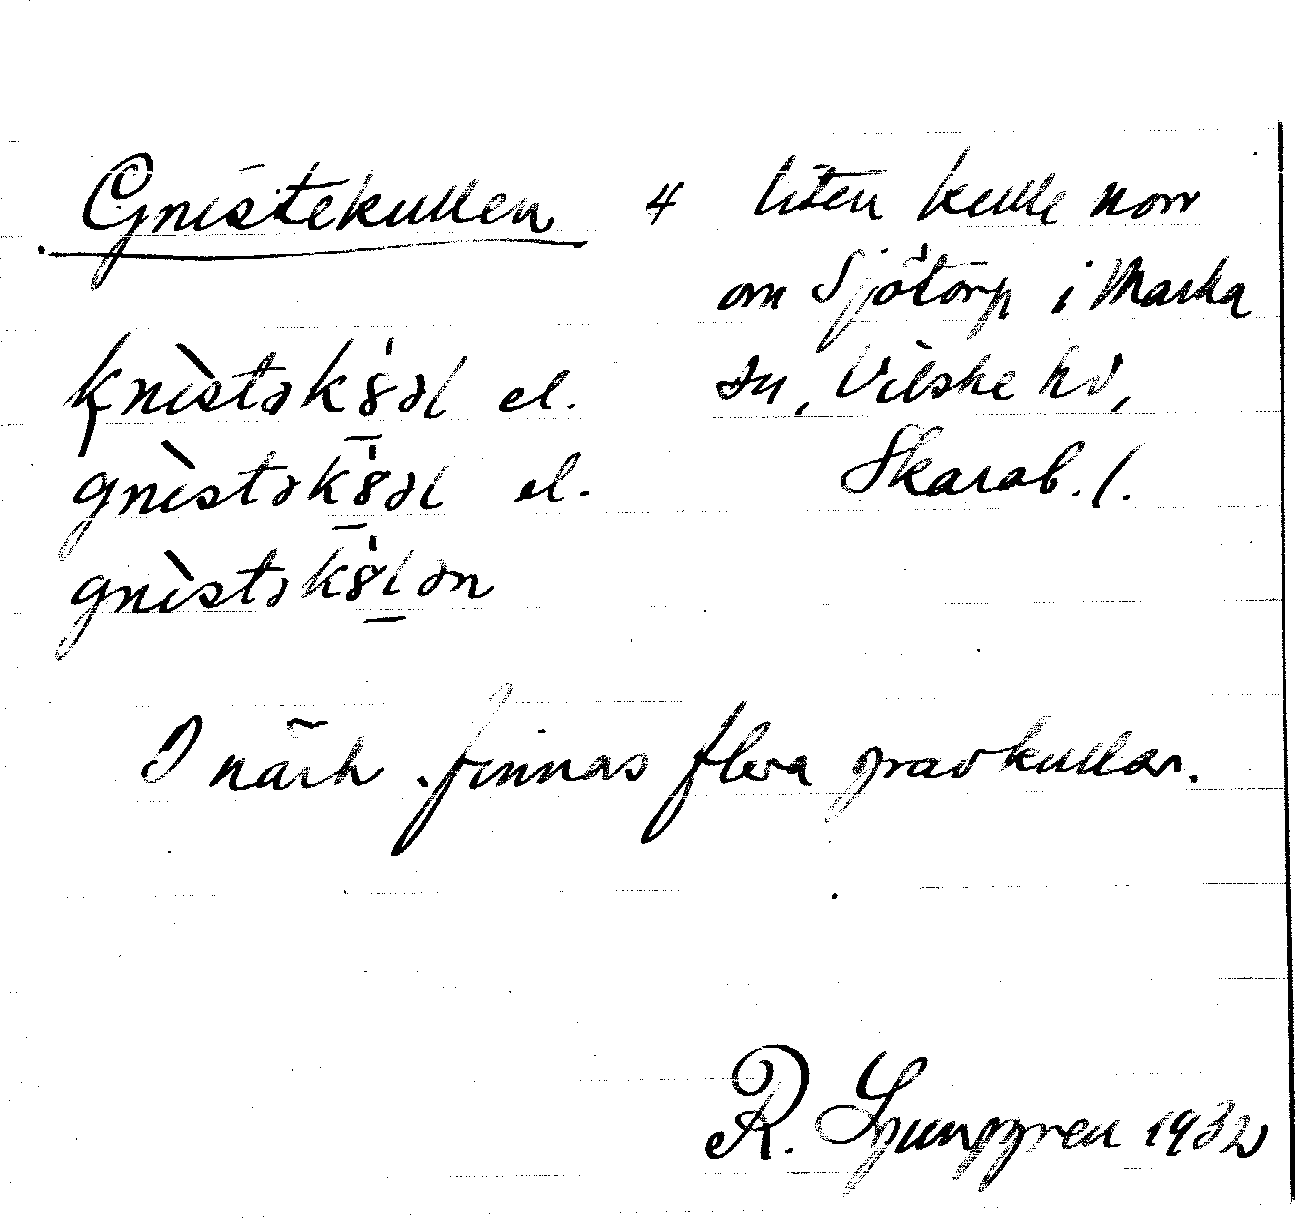 Gnistekullen 4 liten kulle norr
om Sjötorp i Marka
sn, Vilske hd,
Skarab. l.
gnistəkɞləl el.
gnistəkɞlən
I närh. finnas flera gravkullar.
R. Ljunggren 1932